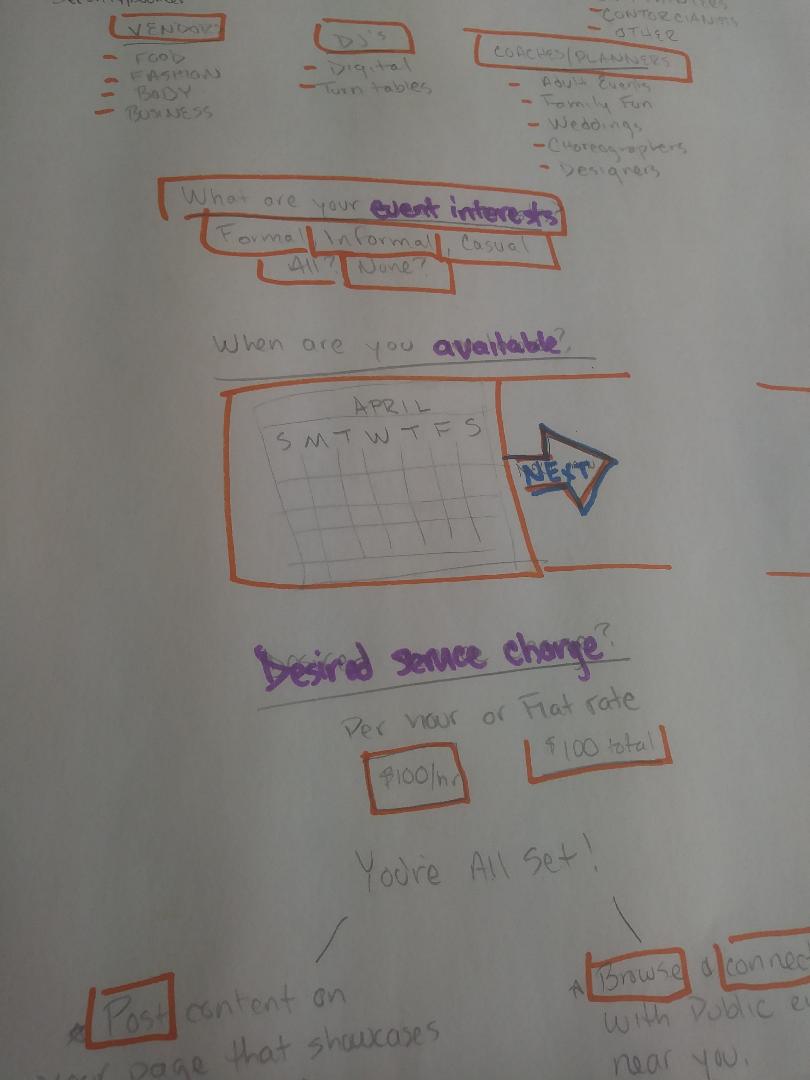 CONTORCIANISTS
- OTHER
VENDORS
- FOOD
- FASHION
- BODY
- BUSINESS
DJ's
- Digital
- Turn tables
COACHES/PLANNERS
- Adult Events
- Family Fun
- Weddings
- Choreographers
- Designers
What are your event interests
Formal, Informal, Casual
All? None?
When are you available?
APRIL
S M T W T F S
NEXT
Desired service charge?
Per hour or Flat rate
$100/hr
$100 total
You're All Set!
* Post content on
your page that showcases
* Browse & connec
with Public e
near you.